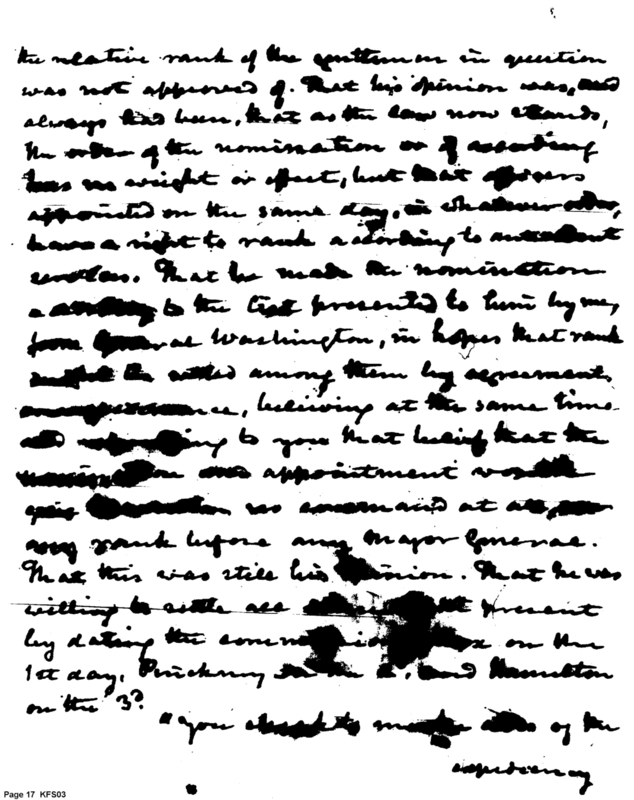 the relative rank of the gentlemen in question
was not approved of. That his opinion was, and
always had been, that as the law now stands,
the order of the nomination or of recording
has no weight or effect, but that officers
appointed on the same day, in whatever order,
have a right to rank according to antecedent
services. That he made the nomination
according to the list presented to him by me,
from General Washington, in hopes that rank
might be settled among them by agreement
, believing at the same time
and to you that belief that the
nomination and appointment would
give no command at all, nor
any rank before any Major General.
That this was still his opinion. That he was
willing to settle all present
by dating the commission Knox on the
1st day, Pinckney on the 2, and Hamilton
on the 3d
"You of the
expediency
Page 17 KFS03